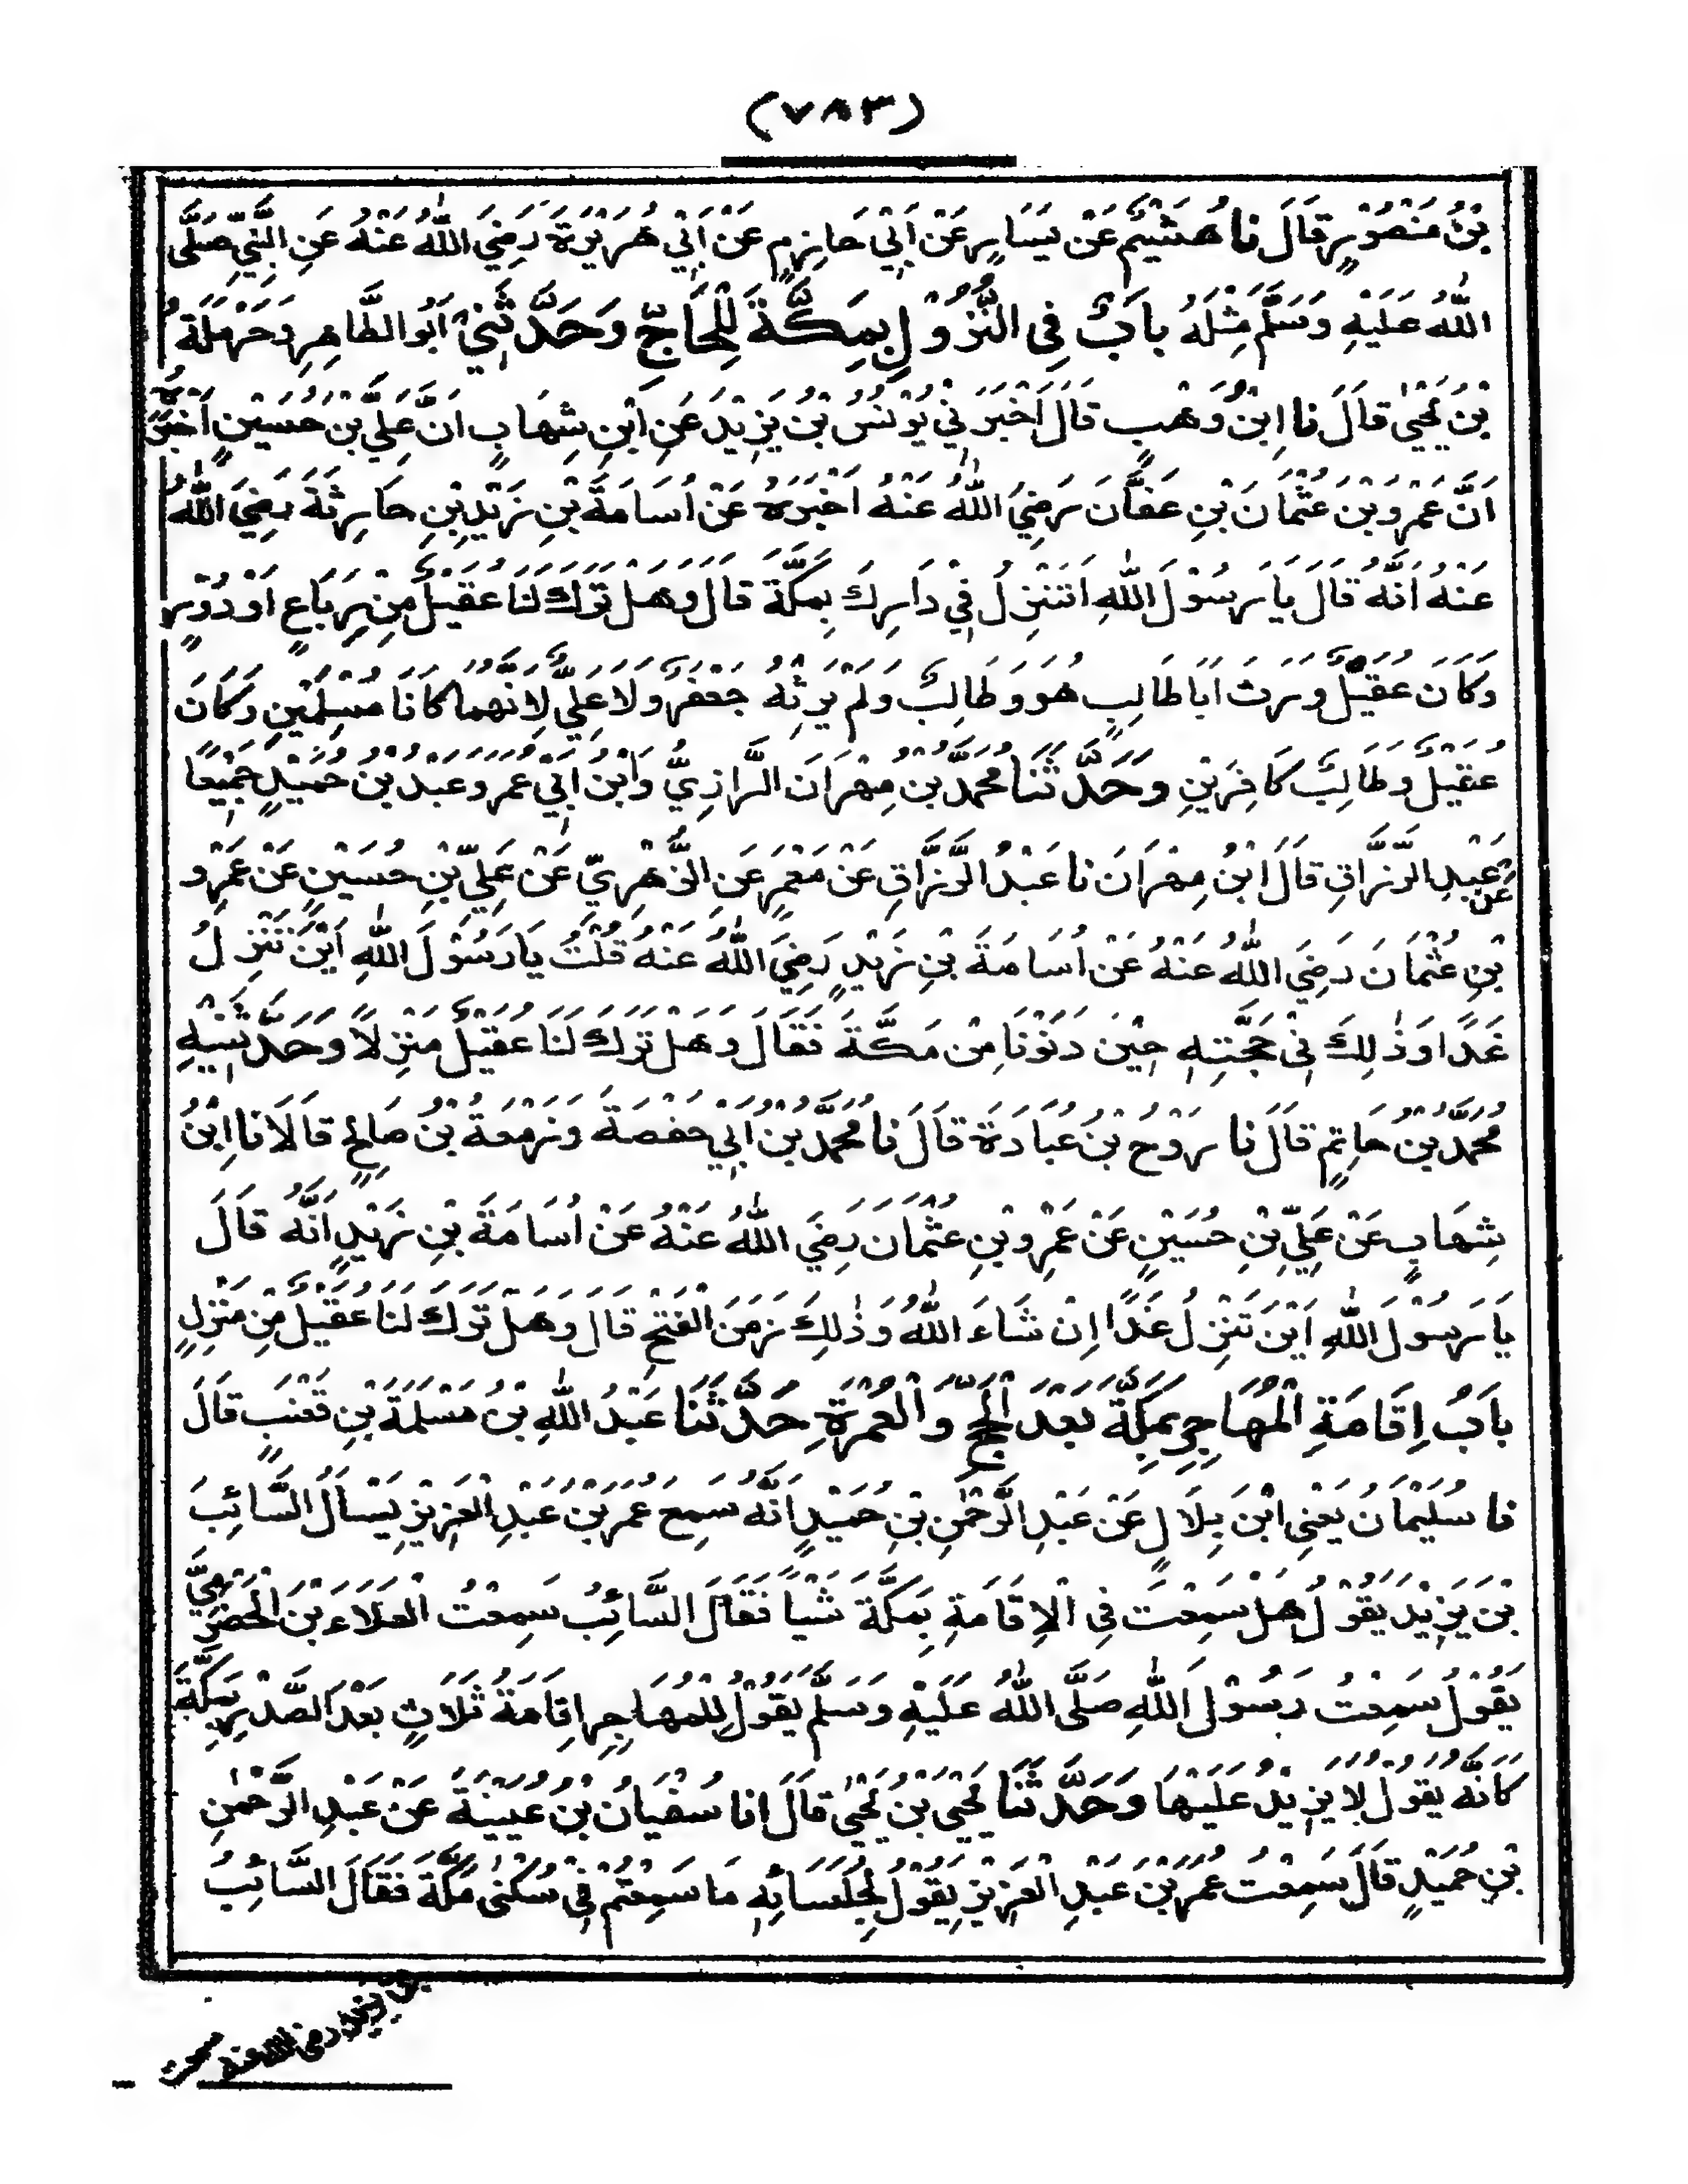 (٧٨٣)
بْنُ مَنْصُوْرٍ قَالَ نَا هُشَيْمٌ عَنْ يَسَارٍ عَنْ اَبِيْ حَازِمٍ عَنْ اَبِيْ هُرَيْرَةَ رَضِيَ اللّٰهُ عَنْهُ عَنِ النَّبِيِّ صَلَّى
اللّٰهُ عَلَيْهِ وَسَلَّمَ مِثْلَهُ بَابٌ فِى النُّزُوْلِ بِمَكَّةَ لِلْحَاجِّ وَحَدَّثَنِيْ اَبُو الطَّاهِرِ وَحَرْمَلَةُ
بْنُ يَحْيٰى قَالَ نَا ابْنُ وَهْبٍ قَالَ اَخْبَرَنِيْ يُوْنُسُ بْنُ يَزِيْدَ عَنِ ابْنِ شِهَابٍ اَنَّ عَلِيَّ بْنَ حُسَيْنٍ اَخْبَرَهُ
اَنَّ عَمْرَو بْنَ عُثْمَانَ بْنِ عَفَّانَ رَضِيَ اللّٰهُ عَنْهُ اَخْبَرَهُ عَنْ اُسَامَةَ بْنِ زَيْدِ بْنِ حَارِثَةَ رَضِيَ اللّٰهُ
عَنْهُ اَنَّهُ قَالَ يَا رَسُوْلَ اللّٰهِ اَتَنْزِلُ فِيْ دَارِكَ بِمَكَّةَ قَالَ وَهَلْ تَرَكَ لَنَا عَقِيْلٌ مِنْ رِبَاعٍ اَوْ دُوْرٍ
وَكَانَ عَقِيْلٌ وَرِثَ اَبَا طَالِبٍ هُوَ وَطَالِبٌ وَلَمْ يَرِثْهُ جَعْفَرٌ وَلَا عَلِيٌّ لِاَنَّهُمَا كَانَا مُسْلِمَيْنِ وَكَانَ
عَقِيْلٌ وَطَالِبٌ كَافِرَيْنِ وَحَدَّثَنَا مُحَمَّدُ بْنُ مِهْرَانَ الرَّازِيُّ وَابْنُ اَبِيْ عُمَرَ وَعَبْدُ بْنُ حُمَيْدٍ جَمِيْعًا
عَنْ عَبْدِ الرَّزَّاقِ قَالَ ابْنُ مِهْرَانَ نَا عَبْدُ الرَّزَّاقِ عَنْ مَعْمَرٍ عَنِ الزُّهْرِيِّ عَنْ عَلِيِّ بْنِ حُسَيْنٍ عَنْ عَمْرِو
بْنِ عُثْمَانَ رَضِيَ اللّٰهُ عَنْهُ عَنْ اُسَامَةَ بْنِ زَيْدٍ رَضِيَ اللّٰهُ عَنْهُ قُلْتُ يَا رَسُوْلَ اللّٰهِ اَيْنَ تَنْزِلُ
غَدًا وَذٰلِكَ فِيْ حَجَّتِهٖ حِيْنَ دَنَوْنَا مِنْ مَكَّةَ فَقَالَ وَهَلْ تَرَكَ لَنَا عَقِيْلٌ مَنْزِلًا وَحَدَّثَنِيْهِ
مُحَمَّدُ بْنُ حَاتِمٍ قَالَ نَا رَوْحُ بْنُ عُبَادَةَ قَالَ نَا مُحَمَّدُ بْنُ اَبِيْ حَفْصَةَ وَزَمْعَةُ بْنُ صَالِحٍ قَالَا نَا ابْنُ
شِهَابٍ عَنْ عَلِيِّ بْنِ حُسَيْنٍ عَنْ عَمْرِو بْنِ عُثْمَانَ رَضِيَ اللّٰهُ عَنْهُ عَنْ اُسَامَةَ بْنِ زَيْدٍ اَنَّهُ قَالَ
يَا رَسُوْلَ اللّٰهِ اَيْنَ تَنْزِلُ غَدًا اِنْ شَاءَ اللّٰهُ وَذٰلِكَ زَمَنَ الْفَتْحِ قَالَ وَهَلْ تَرَكَ لَنَا عَقِيْلٌ مِنْ مَنْزِلٍ
بَابُ اِقَامَةِ الْمُهَاجِرِ بِمَكَّةَ بَعْدَ الْحَجِّ وَالْعُمْرَةِ حَدَّثَنَا عَبْدُ اللّٰهِ بْنُ مَسْلَمَةَ بْنِ قَعْنَبٍ قَالَ
نَا سُلَيْمَانُ يَعْنِى ابْنَ بِلَالٍ عَنْ عَبْدِ الرَّحْمٰنِ بْنِ حُمَيْدٍ اَنَّهُ سَمِعَ عُمَرَ بْنَ عَبْدِ الْعَزِيْزِ يَسْاَلُ السَّائِبَ
بْنَ يَزِيْدَ يَقُوْلُ هَلْ سَمِعْتَ فِى الْاِقَامَةِ بِمَكَّةَ شَيْاً فَقَالَ السَّائِبُ سَمِعْتُ الْعَلَاءَ بْنَ الْحَضْرَمِيِّ
يَقُوْلُ سَمِعْتُ رَسُوْلَ اللّٰهِ صَلَّى اللّٰهُ عَلَيْهِ وَسَلَّمَ يَقُوْلُ لِلْمُهَاجِرِ اِقَامَةُ ثَلَاثٍ بَعْدَ الصَّدْرِ بِمَكَّةَ
كَاَنَّهُ يَقُوْلُ لَا يَزِيْدُ عَلَيْهَا وَحَدَّثَنَا يَحْيَى بْنُ يَحْيٰى قَالَ اَنَا سُفْيَانُ بْنُ عُيَيْنَةَ عَنْ عَبْدِ الرَّحْمٰنِ
بْنِ حُمَيْدٍ قَالَ سَمِعْتُ عُمَرَ بْنَ عَبْدِ الْعَزِيْزِ يَقُوْلُ لِجُلَسَائِهٖ مَا سَمِعْتُمْ فِيْ سُكْنٰى مَكَّةَ فَقَالَ السَّائِبُ
بن يزيد رضى الله عنه سمعت